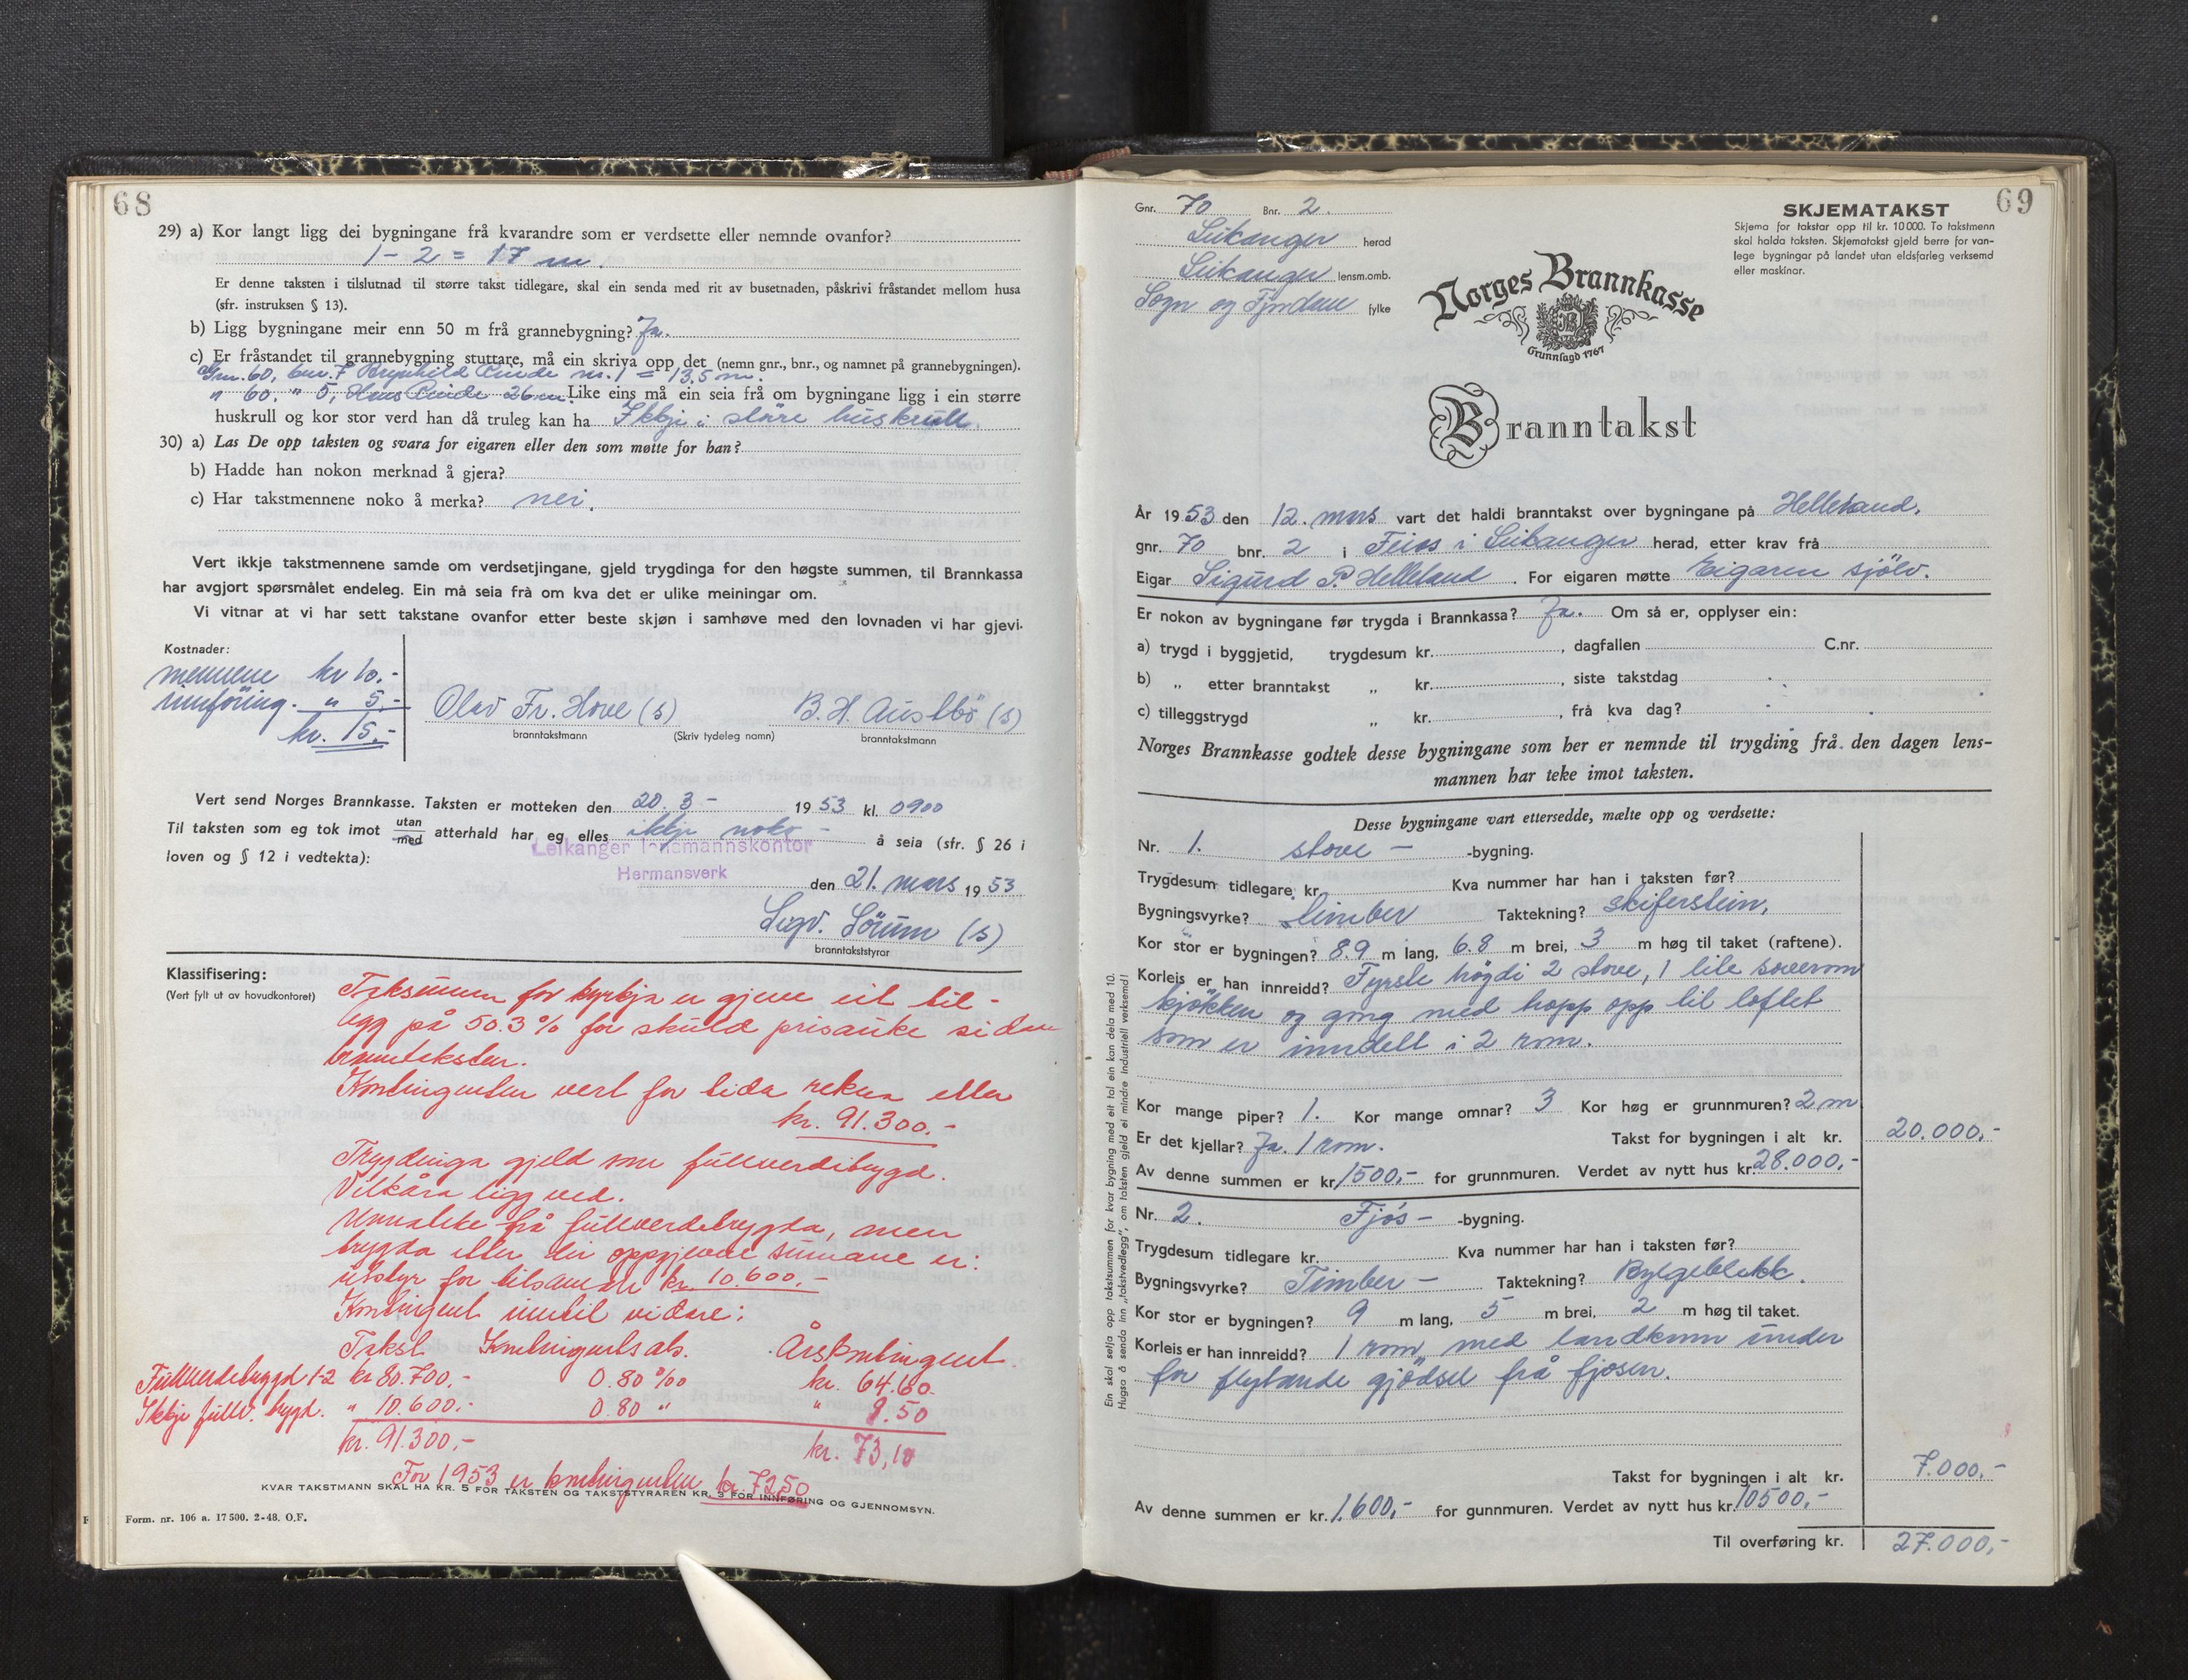 68
29) a) Kor langt ligg dei bygningane frå kvarandre som er verdsette eller nemnde ovanfor?
1 - 2 = 17 m.
Er denne taksten i tilslutnad til større takst tidlegare, skal ein senda med rit av busetnaden, påskrivi fråstandet mellom husa
(sfr. instruksen § 13).
b) Ligg bygningane meir enn 50 m frå grannebygning? Ja.
c) Er fråstandet til grannebygning stuttare, må ein skriva opp det (nemn gnr., bnr., og namnet på grannebygningen).
Gnr. 60, bnr. 7 Brynhild Rinde nr. 1 = 13,5 m.
" 60, " 5, Hans Rinde 26 m. Like eins må ein seia frå om bygningane ligg i ein større
huskrull og kor stor verd han då truleg kan ha Ikkje i större huskrull.
30) a) Las De opp taksten og svara for eigaren eller den som møtte for han?
b) Hadde han nokon merknad å gjera?
c) Har takstmennene noko å merka? nei.
Vert ikkje takstmennene samde om verdsetjingane, gjeld trygdinga for den høgste summen, til Brannkassa
har avgjort spørsmålet endeleg. Ein må seia frå om kva det er ulike meiningar om.
Vi vitnar at vi har sett takstane ovanfor etter beste skjøn i samhøve med den lovnaden vi har gjevi.
Kostnader:
mennene kr 10.-
innföring. " 5.-
kr. 15.-
Olav Fr. Hove (s) B. H. Austbö (s)
branntakstmann (Skriv tydeleg namn) branntakstmann
Vert send Norges Brannkasse. Taksten er motteken den 20. 3 - 1953 kl. 0900
Til taksten som eg tok imot utan/med atterhald har eg elles ikkje noko - å seia (sfr. § 26 i
loven og § 12 i vedtekta):
Leikanger lensmannskontor
Hermansverk
den 21. mars 1953
Sigv. Sörum (s)
branntakststyrar
Klassifisering:
(Vert fylt ut av hovudkontoret)
Taksumen for kyrkja er gjeve eit til-
legg på 50.3% for skuld prisauke sidan
branntaksten.
Kontingenten vert for tida rekna etter
kr. 91.300.-
Trygdinga gjeld som fullverditrygd.
Vilkåra ligg ved.
Unnateke frå fullverditrygda, men
trygda etter dei oppgjevne sumane er:
utstyr for tilsaman kr. 10.600.-
Kontingent inntil vidare:
Takst Kontingentsats. Årskontingent
Fullverditrygd 1-2 kr 80.700.- 0.80 ‰ kr. 64.60
Ikkje fullv. trygd. " 10.600.- 0.80 " " 8.50
kr. 91.300.- kr. 73,10
For 1953 er kontingenten kr. 72.50
KVAR TAKSTMANN SKAL HA KR. 5 FOR TAKSTEN OG TAKSTSTYRAREN KR. 3 FOR INNFØRING OG GJENNOMSYN.
Form. nr. 106 a. 17500. 2-48. O.F.
69
Gnr. 70 Bnr. 2.
Leikanger herad
Leikanger lensm.omb.
Sogn og Fjordane fylke
SKJEMATAKST
Skjema for takstar opp til kr. 10000. To takstmenn
skal halda taksten. Skjematakst gjeld berre for van-
lege bygningar på landet utan eldsfarleg verksemd
eller maskinar.
Norges Brannkasse
Grunnlagd 1767
Branntakst
År 1953 den 12. mars vart det haldi branntakst over bygningane på Helleland.
gnr. 70 bnr. 2 i Feios i Leikanger herad, etter krav frå
Eigar Sigurd P. Helleland. For eigaren møtte Eigaren sjölv.
Er nokon av bygningane før trygda i Brannkassa? Ja. Om så er, opplyser ein:
a) trygd i byggjetid, trygdesum kr. , dagfallen C.nr.
b) „ etter branntakst „ kr. , siste takstdag
c) tilleggstrygd „ kr. , frå kva dag?
Norges Brannkasse godtek desse bygningane som her er nemnde til trygding frå den dagen lens-
mannen har teke imot taksten.
Desse bygningane vart ettersedde, mælte opp og verdsette:
Nr. 1. stove - -bygning.
Trygdesum tidlegare kr. Kva nummer har han i taksten før?
Bygningsvyrke? timber Taktekning? skiferstein,
Kor stor er bygningen? 8.9 m lang, 6.8 m brei, 3 m høg til taket (raftene).
Korleis er han innreidd? Fyrste högdi 2 stove, 1 lite soverom
kjökken og gong med tropp opp til loftet
som er inndelt i 2 rom.
Kor mange piper? 1. Kor mange omnar? 3 Kor høg er grunnmuren? 2 m
Er det kjellar? Ja. 1 rom. Takst for bygningen i alt kr. 20.000,-
Av denne summen er kr. 1500,- for grunnmuren. Verdet av nytt hus kr. 28.000,-
Nr. 2. Fjös - -bygning.
Trygdesum tidlegare kr. Kva nummer har han i taksten før?
Bygningsvyrke? Timber - Taktekning? Bylgeblekk.
Kor stor er bygningen? 9 m lang, 5 m brei, 2 m høg til taket.
Korleis er han innreidd? 1 rom, med landkum under
for flytande gjödsel frå fjosen.
Takst for bygningen i alt kr. 7.000,-
Av denne summen er kr. 1.600,- for gunnmuren. Verdet av nytt hus kr. 10500,-
Til overføring kr. 27.000,-
Ein skal setja opp takstsummen for kvar bygning med eit tal ein kan dela med 10.
Hugsa å senda inn „takstvedlegg", om taksten gjeld ei mindre industriell verksemd!